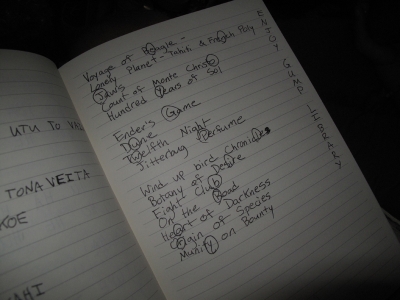 Voyage of Beagle -
Lonely Planet - Tahiti & French Poly.
Jaws
Count of Monte Christo
Hundred Years of Sol
Ender's Game
Dune
Twelfth Night
Jitterbug Perfume
Wind up bird Chronicles
Botany of Desire
Fight Club
On the Road
Heart of Darkness
Origin of Species
Munity on Bounty
ENJOY GUMP LIBRARY
UTU TO
TONA VEITA
KOE
AHI